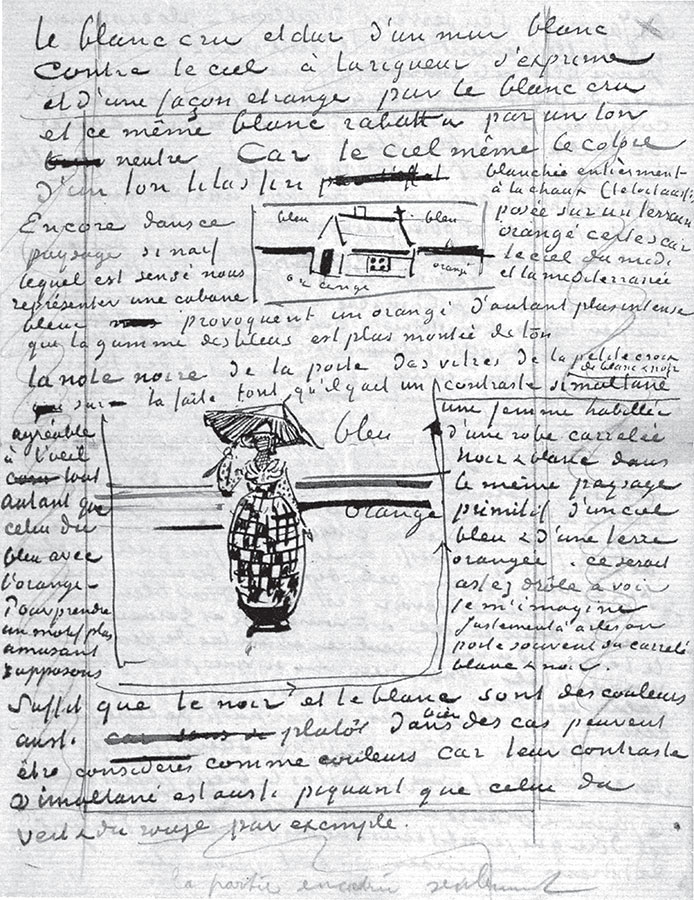 le blanc cru et dur d'un mur blanc
contre le ciel à la rigueur s'exprime
et d'une façon etrange par le blanc cru
et ce même blanc rabattu par un ton
neutre Car le ciel même le colore
d'un ton lilas fin
Encore dans ce
paysage si naif
lequel est sensé nous
représenter une cabane
blanchie entièrment
à la chaux (le toit aussi)
posée sur un terrain
orangé certes car
le ciel du midi
et la mediterranée
bleu
bleu
orangé
orange
bleue provoquent un orangé d'autant plus intense
que la gamme des bleus est plus montée de ton
la note noire de la porte des vitres de la petite croix
sur le faîte font qu'il y ait un contraste simultané
de blanc & noir
agréable
à l'oeil
tout
autant que
celui du
bleu avec
l'orangé-
Pour prendre
un motif plus
amusant
supposons
bleu
orange
une femme habillée
d'une robe carrelée
noir & blanc dans
le même paysage
primitif d'un ciel
bleu & d'une terre
orangée. ce serait
assez drôle a voir
je m'imagine
Justement à arles on
porte souvent du carrelé
blanc & noir.
Suffit que le noir et le blanc sont des couleurs
aussi. plutôt dans bien des cas peuvent
être considérés comme couleurs car leur contraste
simultané est aussi piquant que celui du
vert & du rouge par exemple.
la partie encadrée seulement